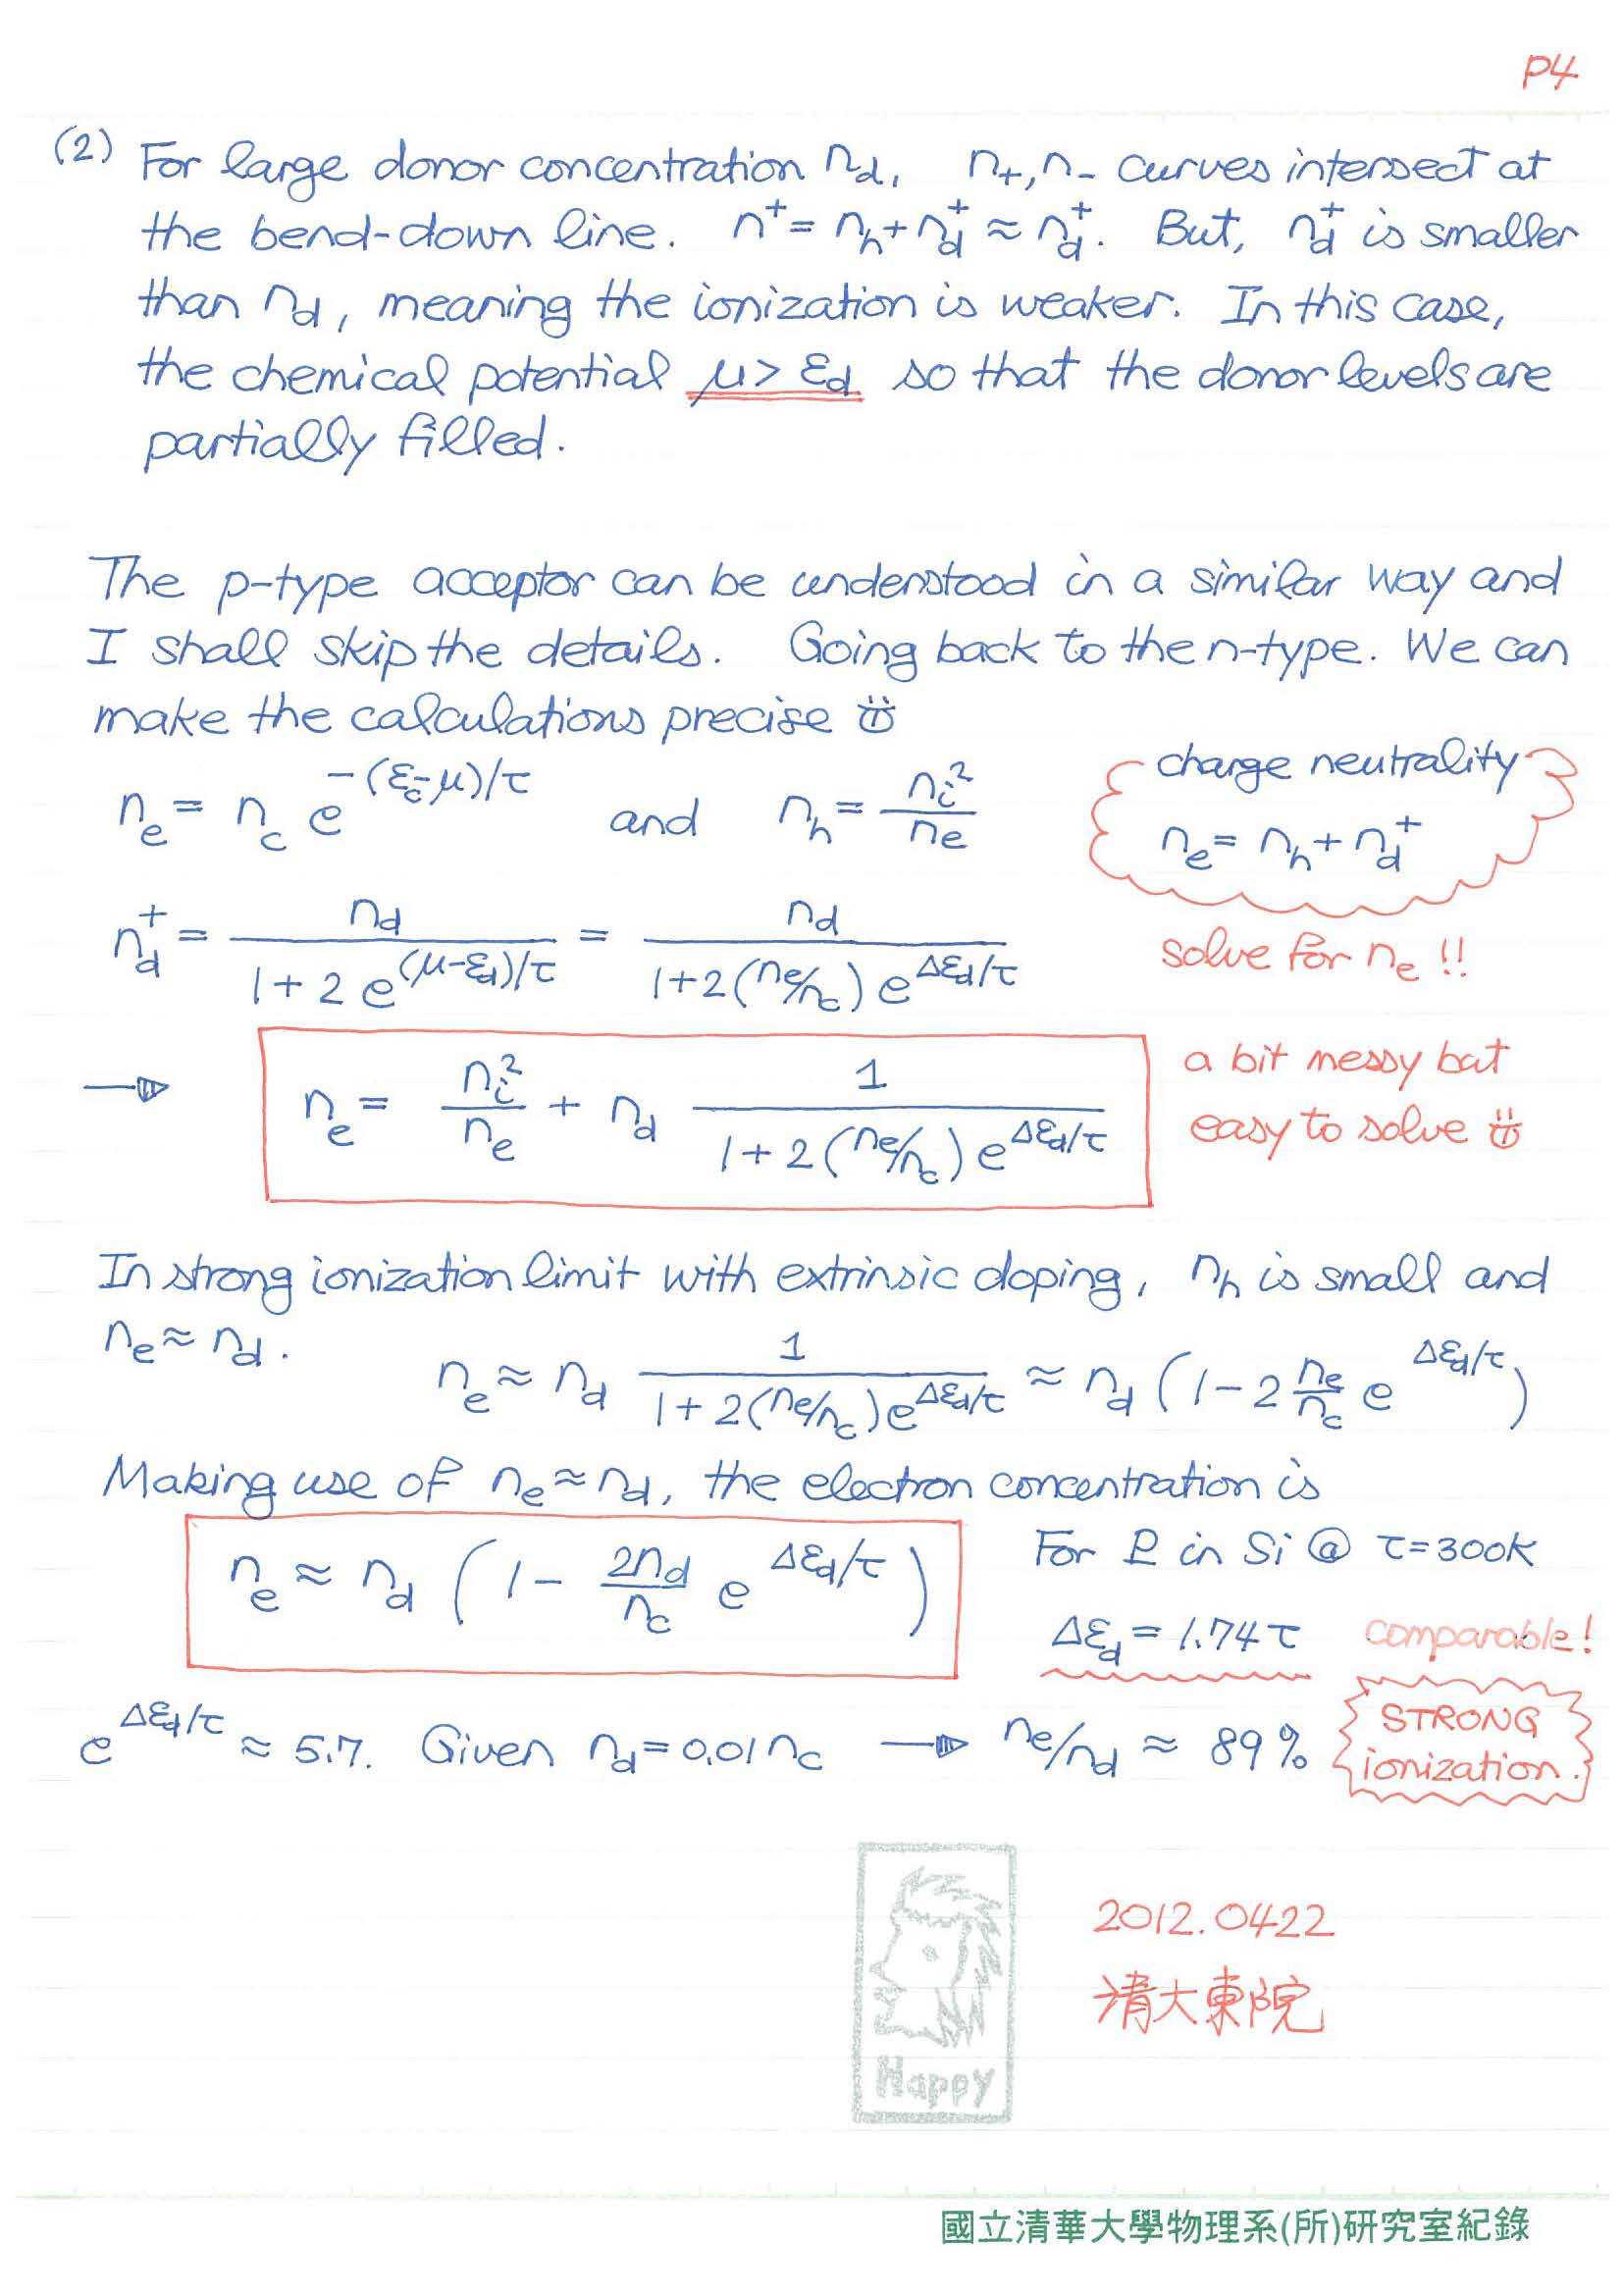 P4
(2) For large donor concentration n_d, n_+, n_- curves intersect at
the bend-down line. n^+ = n_h + n_d^+ ≈ n_d^+. But, n_d^+ is smaller
than n_d, meaning the ionization is weaker. In this case,
the chemical potential μ > ε_d so that the donor levels are
partially filled.
The p-type acceptor can be understood in a similar way and
I shall skip the details. Going back to the n-type. We can
make the calculations precise
n_e = n_c e^{-(ε_c-μ)/τ} and n_h = n_i^2/n_e
charge neutrality
n_e = n_h + n_d^+
n_d^+ = n_d/(1+2e^{(μ-ε_d)/τ}) = n_d/(1+2(n_e/n_c)e^{Δε_d/τ})
solve for n_e !!
→ n_e = n_i^2/n_e + n_d 1/(1+2(n_e/n_c)e^{Δε_d/τ})
a bit messy bat
easy to solve
In strong ionization limit with extrinsic doping, n_h is small and
n_e ≈ n_d.
n_e ≈ n_d 1/(1+2(n_e/n_c)e^{Δε_d/τ}) ≈ n_d (1-2 n_e/n_c e^{Δε_d/τ})
Making use of n_e ≈ n_d, the electron concentration is
n_e ≈ n_d (1 - 2n_d/n_c e^{Δε_d/τ})
For P in Si @ τ=300K
Δε_d = 1.74τ comparable!
e^{Δε_d/τ} ≈ 5.7. Given n_d = 0.01 n_c → n_e/n_d ≈ 89%
STRONG
ionization.
Happy
2012.0422
清大東院
國立清華大學物理系(所)研究室紀錄